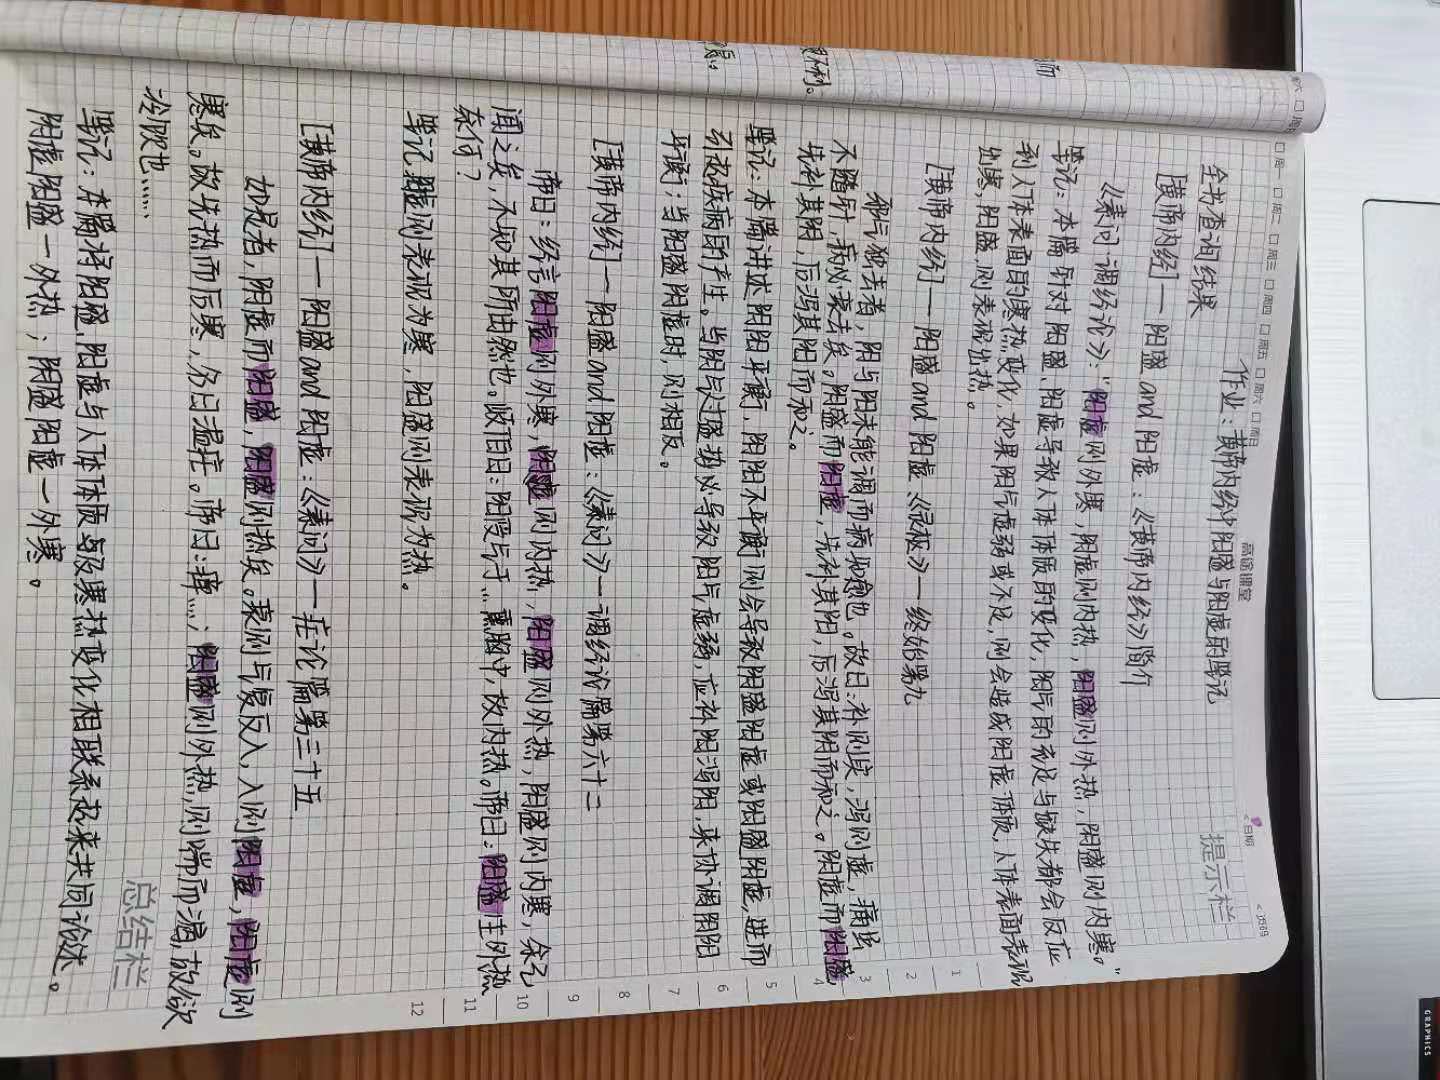 周一 周二 周三 周四 周五 周六 周日
高途课堂
<日期
提示栏
作业：黄帝内经中阳盛与阳虚的笔记
全书查询结果
[黄帝内经]一 阳盛 and 阳虚：《黄帝内经》简介
《素问·调经论》："阳虚则外寒，阴虚则内热，阳盛则外热，阴盛则内寒。"
笔记：本篇针对阳盛、阳虚导致人体体质的变化，阳气的充足与缺失都会反应
到人体表面的寒热变化，如果阳气虚弱或不足，则会造成阳虚体质，人体表面表现
出寒，阳盛，则表现出热。
[黄帝内经]一 阳盛and阳虚：《灵枢》一终始第九
邪气独去者，阴与阳未能调而病知愈也。故曰：补则实，泻则虚，痛虽
不随针，病必衰去矣。阴盛而阳虚，先补其阳，后泻其阴而和之。阴虚而阳盛
先补其阴，后泻其阳而和之。
笔记：本篇讲述阴阳平衡，阴阳不平衡则会导致阴盛阳虚或阳盛阴虚，进而
引起疾病的产生。当阴气过盛势必导致阳气虚弱，应补阳泻阴，来协调阴阳
平衡；当阳盛阴虚时，则相反。
[黄帝内经]一 阳盛and阳虚：《素问》一调经论篇第六十二
帝曰：经言阳虚则外寒，阴虚则内热，阳盛则外热，阴盛则内寒，余已
闻之矣，不知其所由然也。岐伯曰：阳受气于…熏胸中，故内热。帝曰：阳盛生外热
奈何？
笔记：阳虚则表现为寒，阳盛则表现为热。
[黄帝内经]一 阳盛and阳虚：《素问》一疟论篇第三十五
如是者，阴虚而阳盛，阳盛则热矣。衰则气复反入，入则阳虚，阳虚则
寒矣。故先热而后寒，名曰温疟。帝曰：瘅……；阳盛则外热，则喘而渴，故欲
冷饮也……
总结栏
笔记：本篇将阳盛、阳虚与人体体质与及寒热变化相联系起来共同论述。
阴虚阳盛一外热；阴盛阳虚一外寒。
1
2
3
4
5
6
7
8
9
10
11
12
GRAPHICS